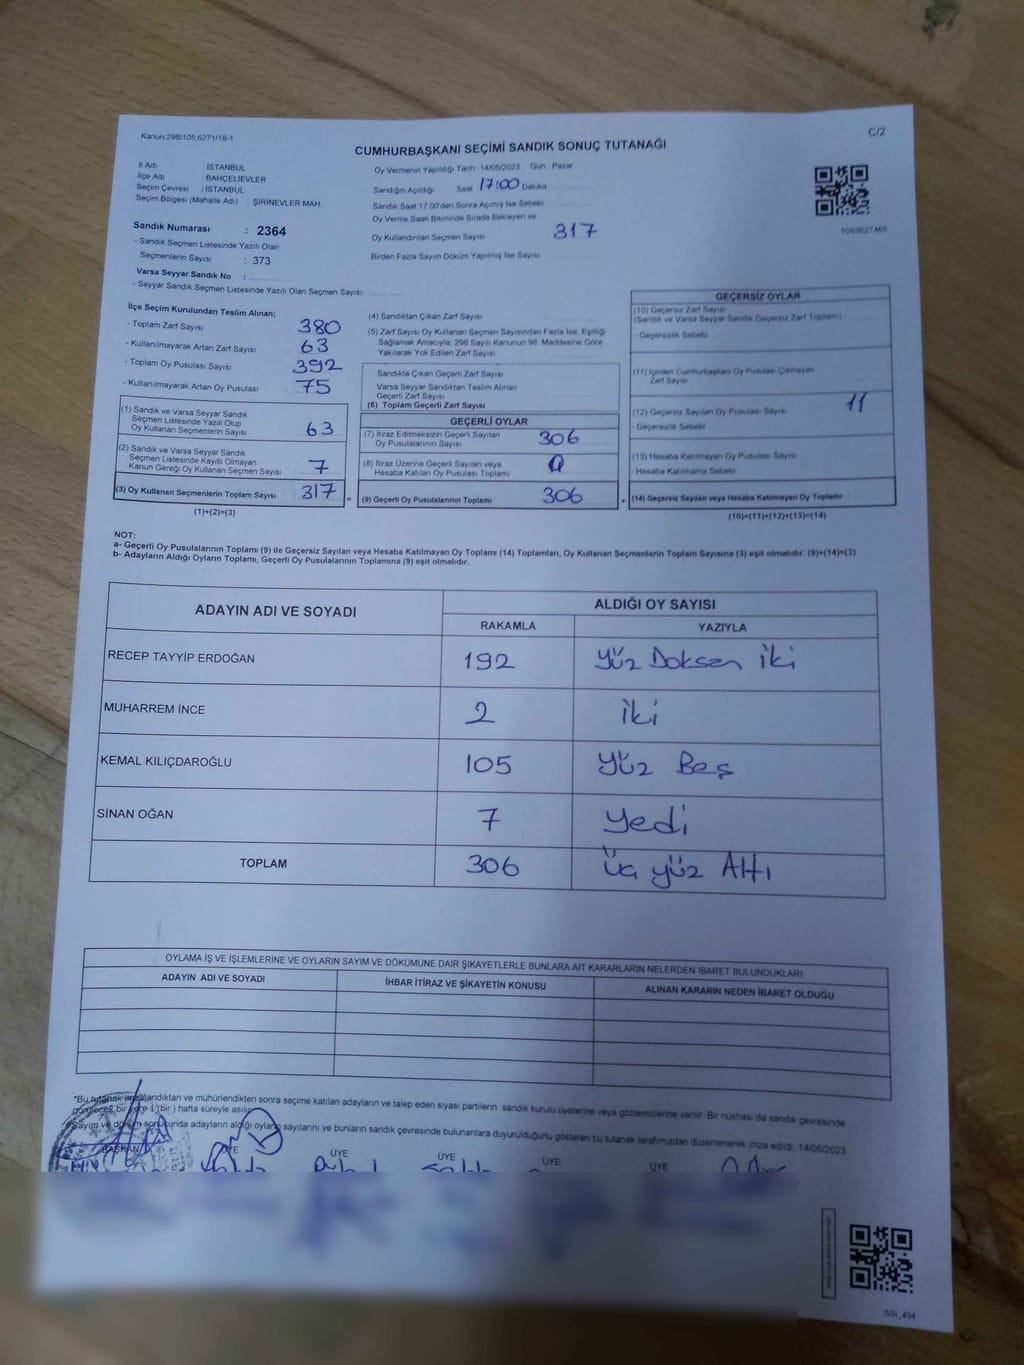 Kanun:298/105,6271/18-1
C/2
CUMHURBAŞKANI SEÇİMİ SANDIK SONUÇ TUTANAĞI
İl Adı : İSTANBUL
İlçe Adı : BAHÇELİEVLER
Seçim Çevresi : İSTANBUL
Seçim Bölgesi (Mahalle Adı) : ŞİRİNEVLER MAH.
Sandık Numarası : 2364
- Sandık Seçmen Listesinde Yazılı Olan
Seçmenlerin Sayısı : 373
Varsa Seyyar Sandık No :
- Seyyar Sandık Seçmen Listesinde Yazılı Olan Seçmen Sayısı:
Oy Vermenin Yapıldığı Tarih 14/05/2023 Gün Pazar
Sandığın Açıldığı Saat 17:00 Dakika
Sandık Saat 17.00'den Sonra Açılmış İse Sebebi
Oy Verme Saati Bitiminde Sırada Bekleyen ve
Oy Kullandırılan Seçmen Sayısı 317
Birden Fazla Sayım Döküm Yapılmış İse Sayısı
1093627465
İlçe Seçim Kurulundan Teslim Alınan;
- Toplam Zarf Sayısı 380
- Kullanılmayarak Artan Zarf Sayısı 63
- Toplam Oy Pusulası Sayısı 392
- Kullanılmayarak Artan Oy Pusulası 75
(1) Sandık ve Varsa Seyyar Sandık
Seçmen Listesinde Yazılı Olup
Oy Kullanan Seçmenlerin Sayısı 63
(2) Sandık ve Varsa Seyyar Sandık
Seçmen Listesinde Kayıtlı Olmayan
Kanun Gereği Oy Kullanan Seçmen Sayısı 7
(3) Oy Kullanan Seçmenlerin Toplam Sayısı 317 =
(1)+(2)=(3)
(4) Sandıktan Çıkan Zarf Sayısı
(5) Zarf Sayısı Oy Kullanan Seçmen Sayısından Fazla İse, Eşitliği
Sağlamak Amacıyla, 298 Sayılı Kanunun 98. Maddesine Göre
Yakılarak Yok Edilen Zarf Sayısı
Sandıkta Çıkan Geçerli Zarf Sayısı
Varsa Seyyar Sandıktan Teslim Alınan
Geçerli Zarf Sayısı
(6) Toplam Geçerli Zarf Sayısı
GEÇERLİ OYLAR
(7) İtiraz Edilmeksizin Geçerli Sayılan
Oy Pusulalarının Sayısı 306
(8) İtiraz Üzerine Geçerli Sayılan veya
Hesaba Katılan Oy Pusulası Toplamı
(9) Geçerli Oy Pusulalarının Toplamı 306 +
GEÇERSİZ OYLAR
(10) Geçersiz Zarf Sayısı
(Sandık ve Varsa Seyyar Sandık Geçersiz Zarf Toplamı)
- Geçersizlik Sebebi
(11) İçinden Cumhurbaşkanı Oy Pusulası Çıkmayan
Zarf Sayısı
(12) Geçersiz Sayılan Oy Pusulası Sayısı 11
- Geçersizlik Sebebi
(13) Hesaba Katılmayan Oy Pusulası Sayısı
- Hesaba Katılmama Sebebi
(14) Geçersiz Sayılan veya Hesaba Katılmayan Oy Toplamı
(10)+(11)+(12)+(13)=(14)
NOT:
a- Geçerli Oy Pusulalarının Toplamı (9) ile Geçersiz Sayılan veya Hesaba Katılmayan Oy Toplamı (14) Toplamları, Oy Kullanan Seçmenlerin Toplam Sayısına (3) eşit olmalıdır. (9)+(14)=(3)
b- Adayların Aldığı Oyların Toplamı, Geçerli Oy Pusulalarının Toplamına (9) eşit olmalıdır.
ADAYIN ADI VE SOYADI
ALDIĞI OY SAYISI
RAKAMLA YAZIYLA
RECEP TAYYİP ERDOĞAN 192 Yüz Doksan iki
MUHARREM İNCE 2 iki
KEMAL KILIÇDAROĞLU 105 Yüz Beş
SİNAN OĞAN 7 Yedi
TOPLAM 306 Üç yüz Altı
OYLAMA İŞ VE İŞLEMLERİNE VE OYLARIN SAYIM VE DÖKÜMÜNE DAİR ŞİKAYETLERLE BUNLARA AİT KARARLARIN NELERDEN İBARET BULUNDUKLARI
ADAYIN ADI VE SOYADI İHBAR İTİRAZ VE ŞİKAYETİN KONUSU ALINAN KARARIN NEDEN İBARET OLDUĞU
*Bu tutanak imzalandıktan ve mühürlendikten sonra seçime katılan adayların ve talep eden siyasi partilerin sandık kurulu üyelerine veya gözlemcilerine verilir. Bir nüshası da sandık çevresinde
görülecek bir yere 1 (bir) hafta süreyle asılır.
Sayım ve döküm sonucunda adayların aldığı oyların sayılarını ve bunların sandık çevresinde bulunanlara duyurulduğunu gösteren bu tutanak tarafımızdan düzenlenerek imza edildi. 14/05/2023
BAŞKAN ÜYE ÜYE ÜYE ÜYE ÜYE
SSİ_404